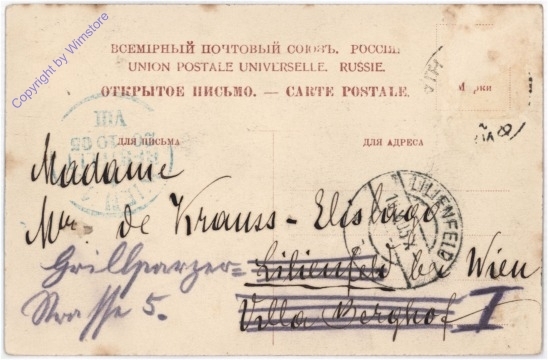 Copyright by Wimstore
ВСЕМІРНЫЙ ПОЧТОВЫЙ СОЮЗЪ. РОССІЯ.
UNION POSTALE UNIVERSELLE. RUSSIE.
ОТКРЫТОЕ ПИСЬМО. — CARTE POSTALE.
Марки
ДЛЯ ПИСЬМА
ДЛЯ АДРЕСА
VIII
LILIENFELD
Madame
Mm. de Krauss-Elislago
Grillparzer= Lilienfeld bei Wien
Strasse 5. Villa Berghof I